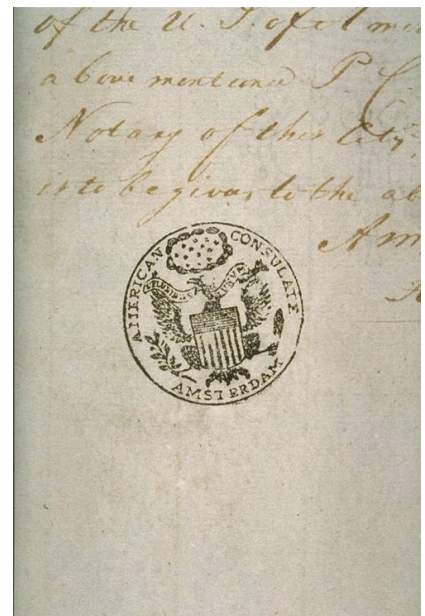 of the U. S. of Amer
above mentioned P. C
Notary of this City,
is to be given to the ab
Am
AMERICAN CONSULATE
AMSTERDAM